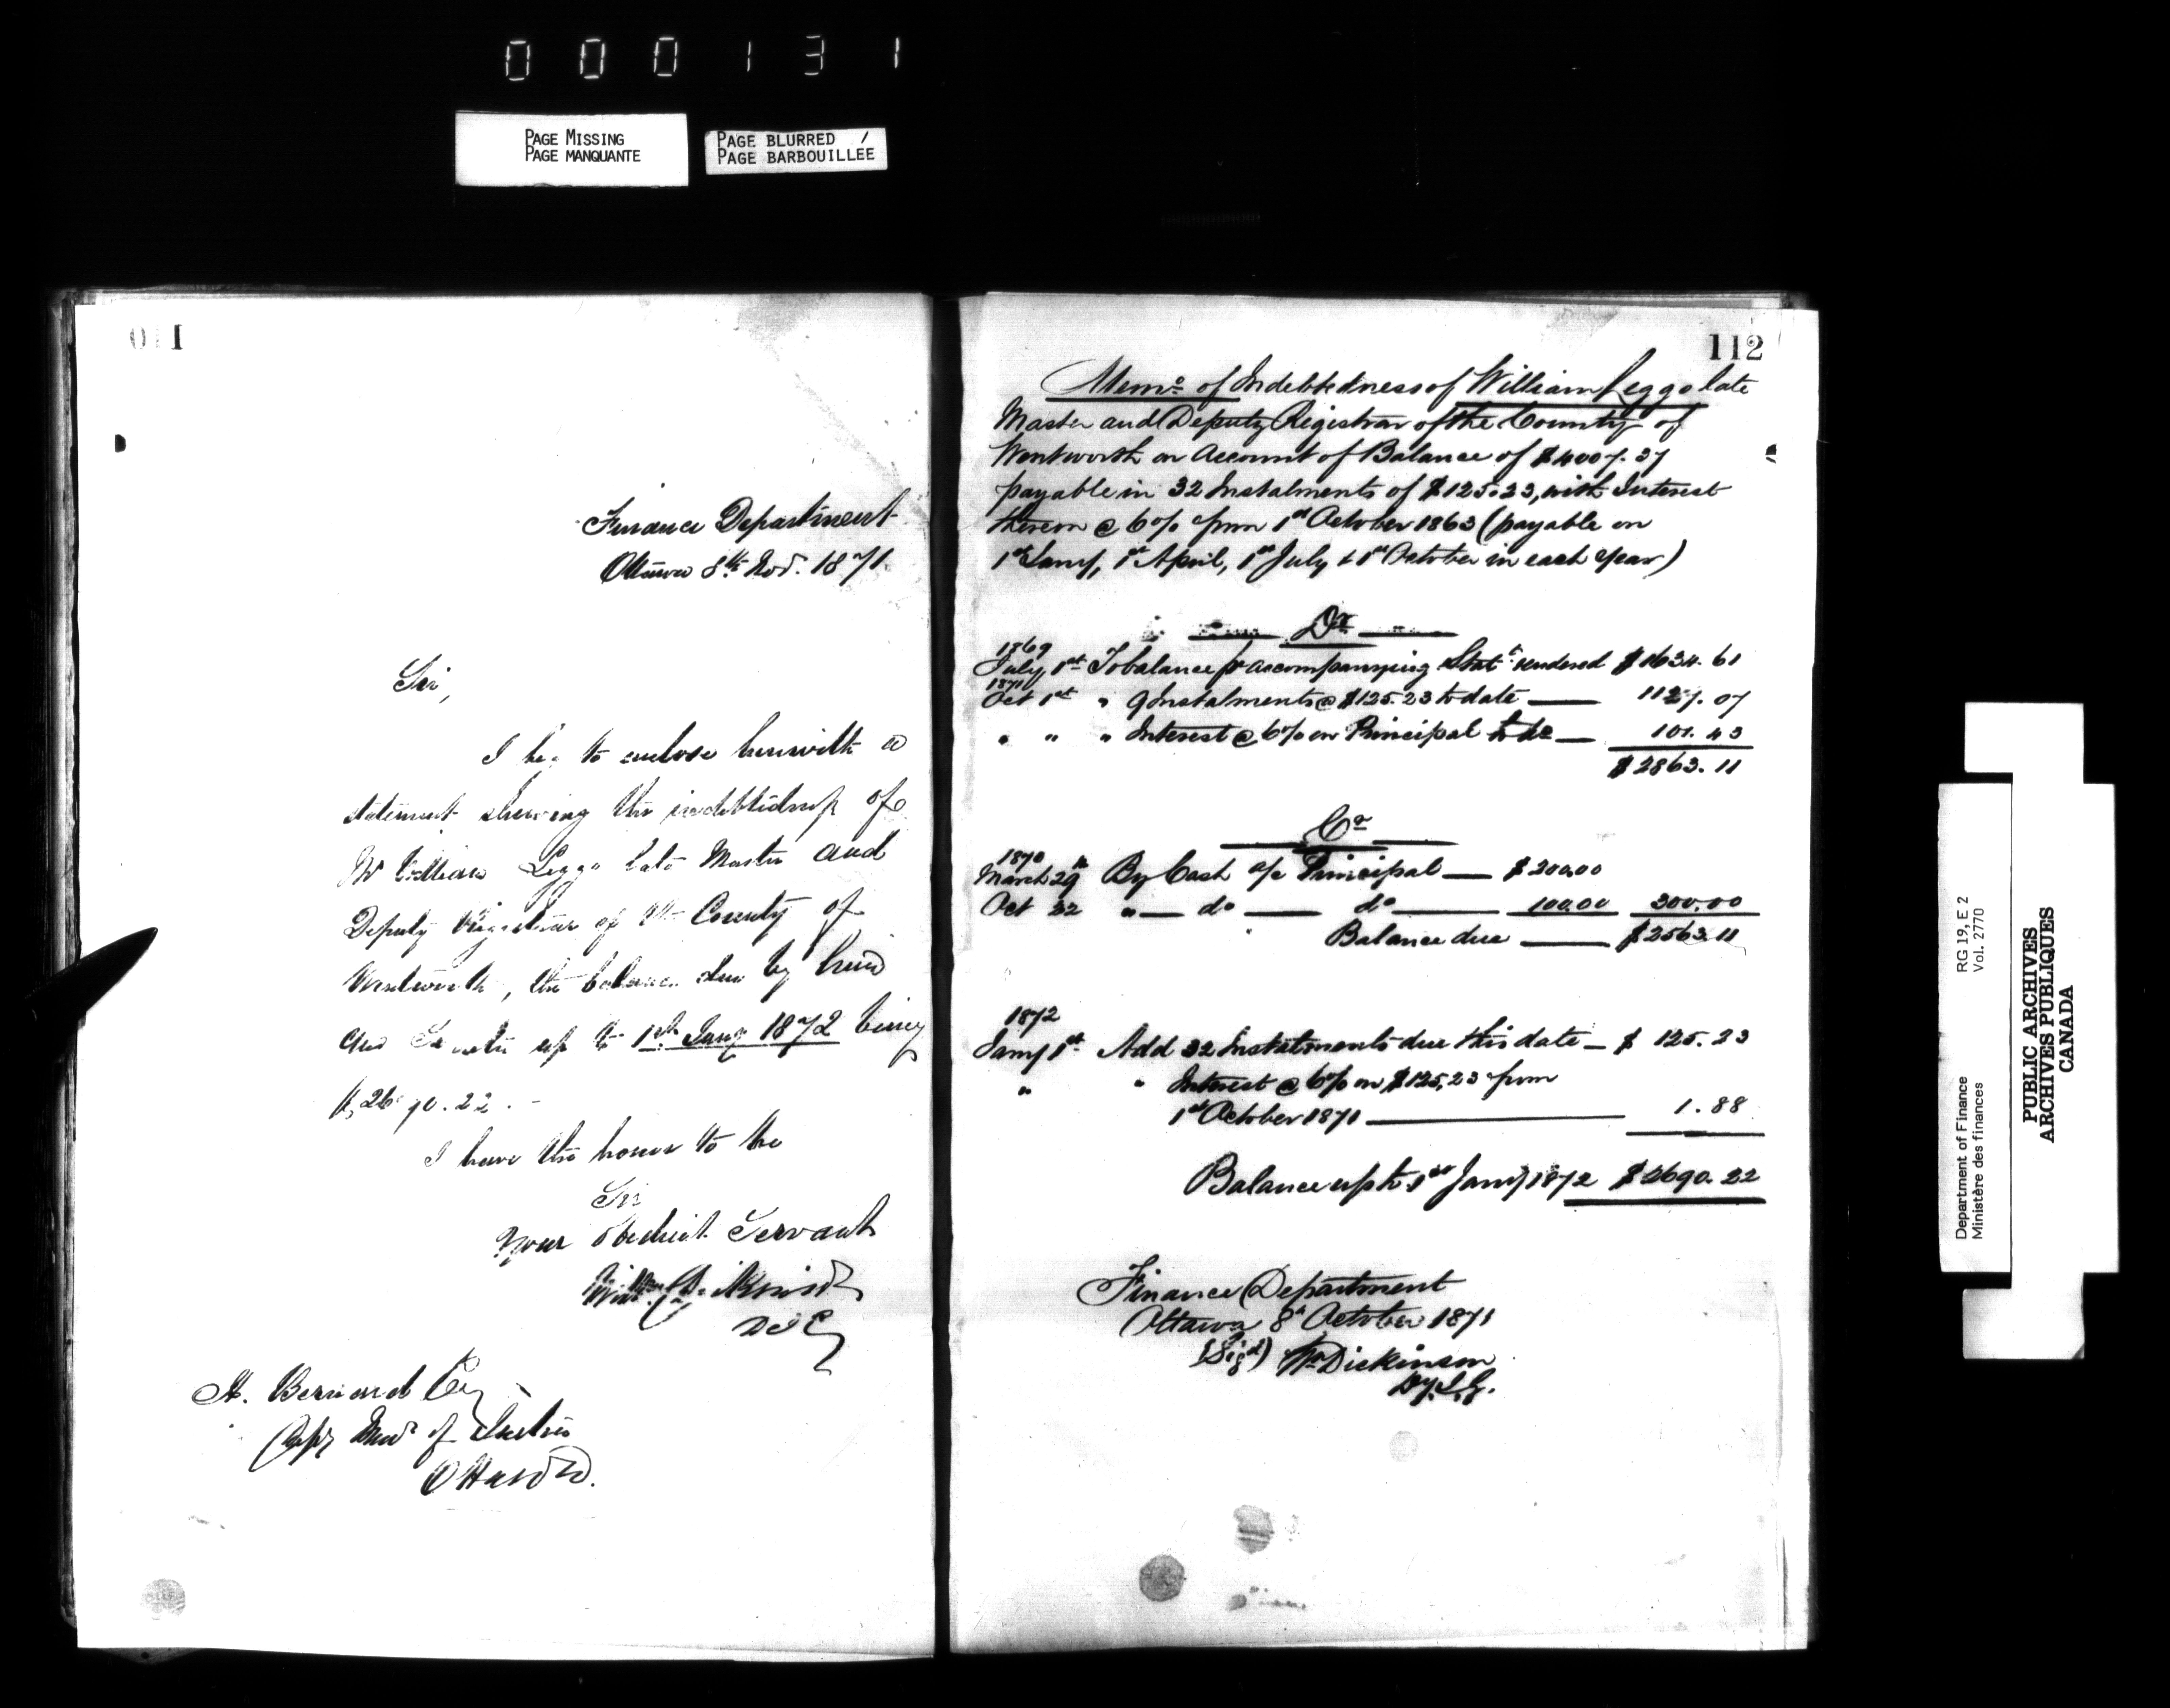 000131
PAGE MISSING
PAGE MANQUANTE
PAGE BLURRED /
PAGE BARBOUILLEE
Finance Department
Ottawa 8th Nov. 1871.
Sir,
I beg to enclose herewith a
statement shewing the indebtedness of
Mr William Leggo late Master and
Deputy Registrar of the County of
Wentworth, the balance due by him
up to 1st Jany 1872 being
$2690.22.-
I have the honor to be
Sir
Your obedient Servant
Wm Dickinson
H. Bernard Esq
Depy Minr of Justice
Ottawa.
112
Memo of Indebtedness of William Leggo late
Master and Deputy Registrar of the County of
Wentworth on Account of Balance of $4007.37
payable in 32 Instalments of $125.23, with Interest
thereon @ 6% from 1st October 1863 (payable on
1st Jany, 1st April, 1st July & 1st October in each Year)
Dr
1869
July 1st To balance pr accompanying Statt rendered $1634.61
1871
Oct 1st " 9 Instalments @ $125.23 to date — 1127.07
" " " Interest @ 6% on Principal to do — 101.43
$2863.11
Cr
1870
March 29th By Cash a/c Principal — $200.00
Oct 22 " — do — do — 100.00 300.00
Balance due — $2563.11
1872
Jany 1st Add 32 Instalments due this date — $ 125.23
" " Interest @ 6% on $125.23 from
1st October 1871 — 1.88
Balance up to 1st Jany 1872 $2690.22
Finance Department
Ottawa 8th October 1871
(Sigd) Wm Dickinson
Dy. I. G.
Department of Finance RG 19, E 2
Ministère des finances Vol. 2770
PUBLIC ARCHIVES
ARCHIVES PUBLIQUES
CANADA